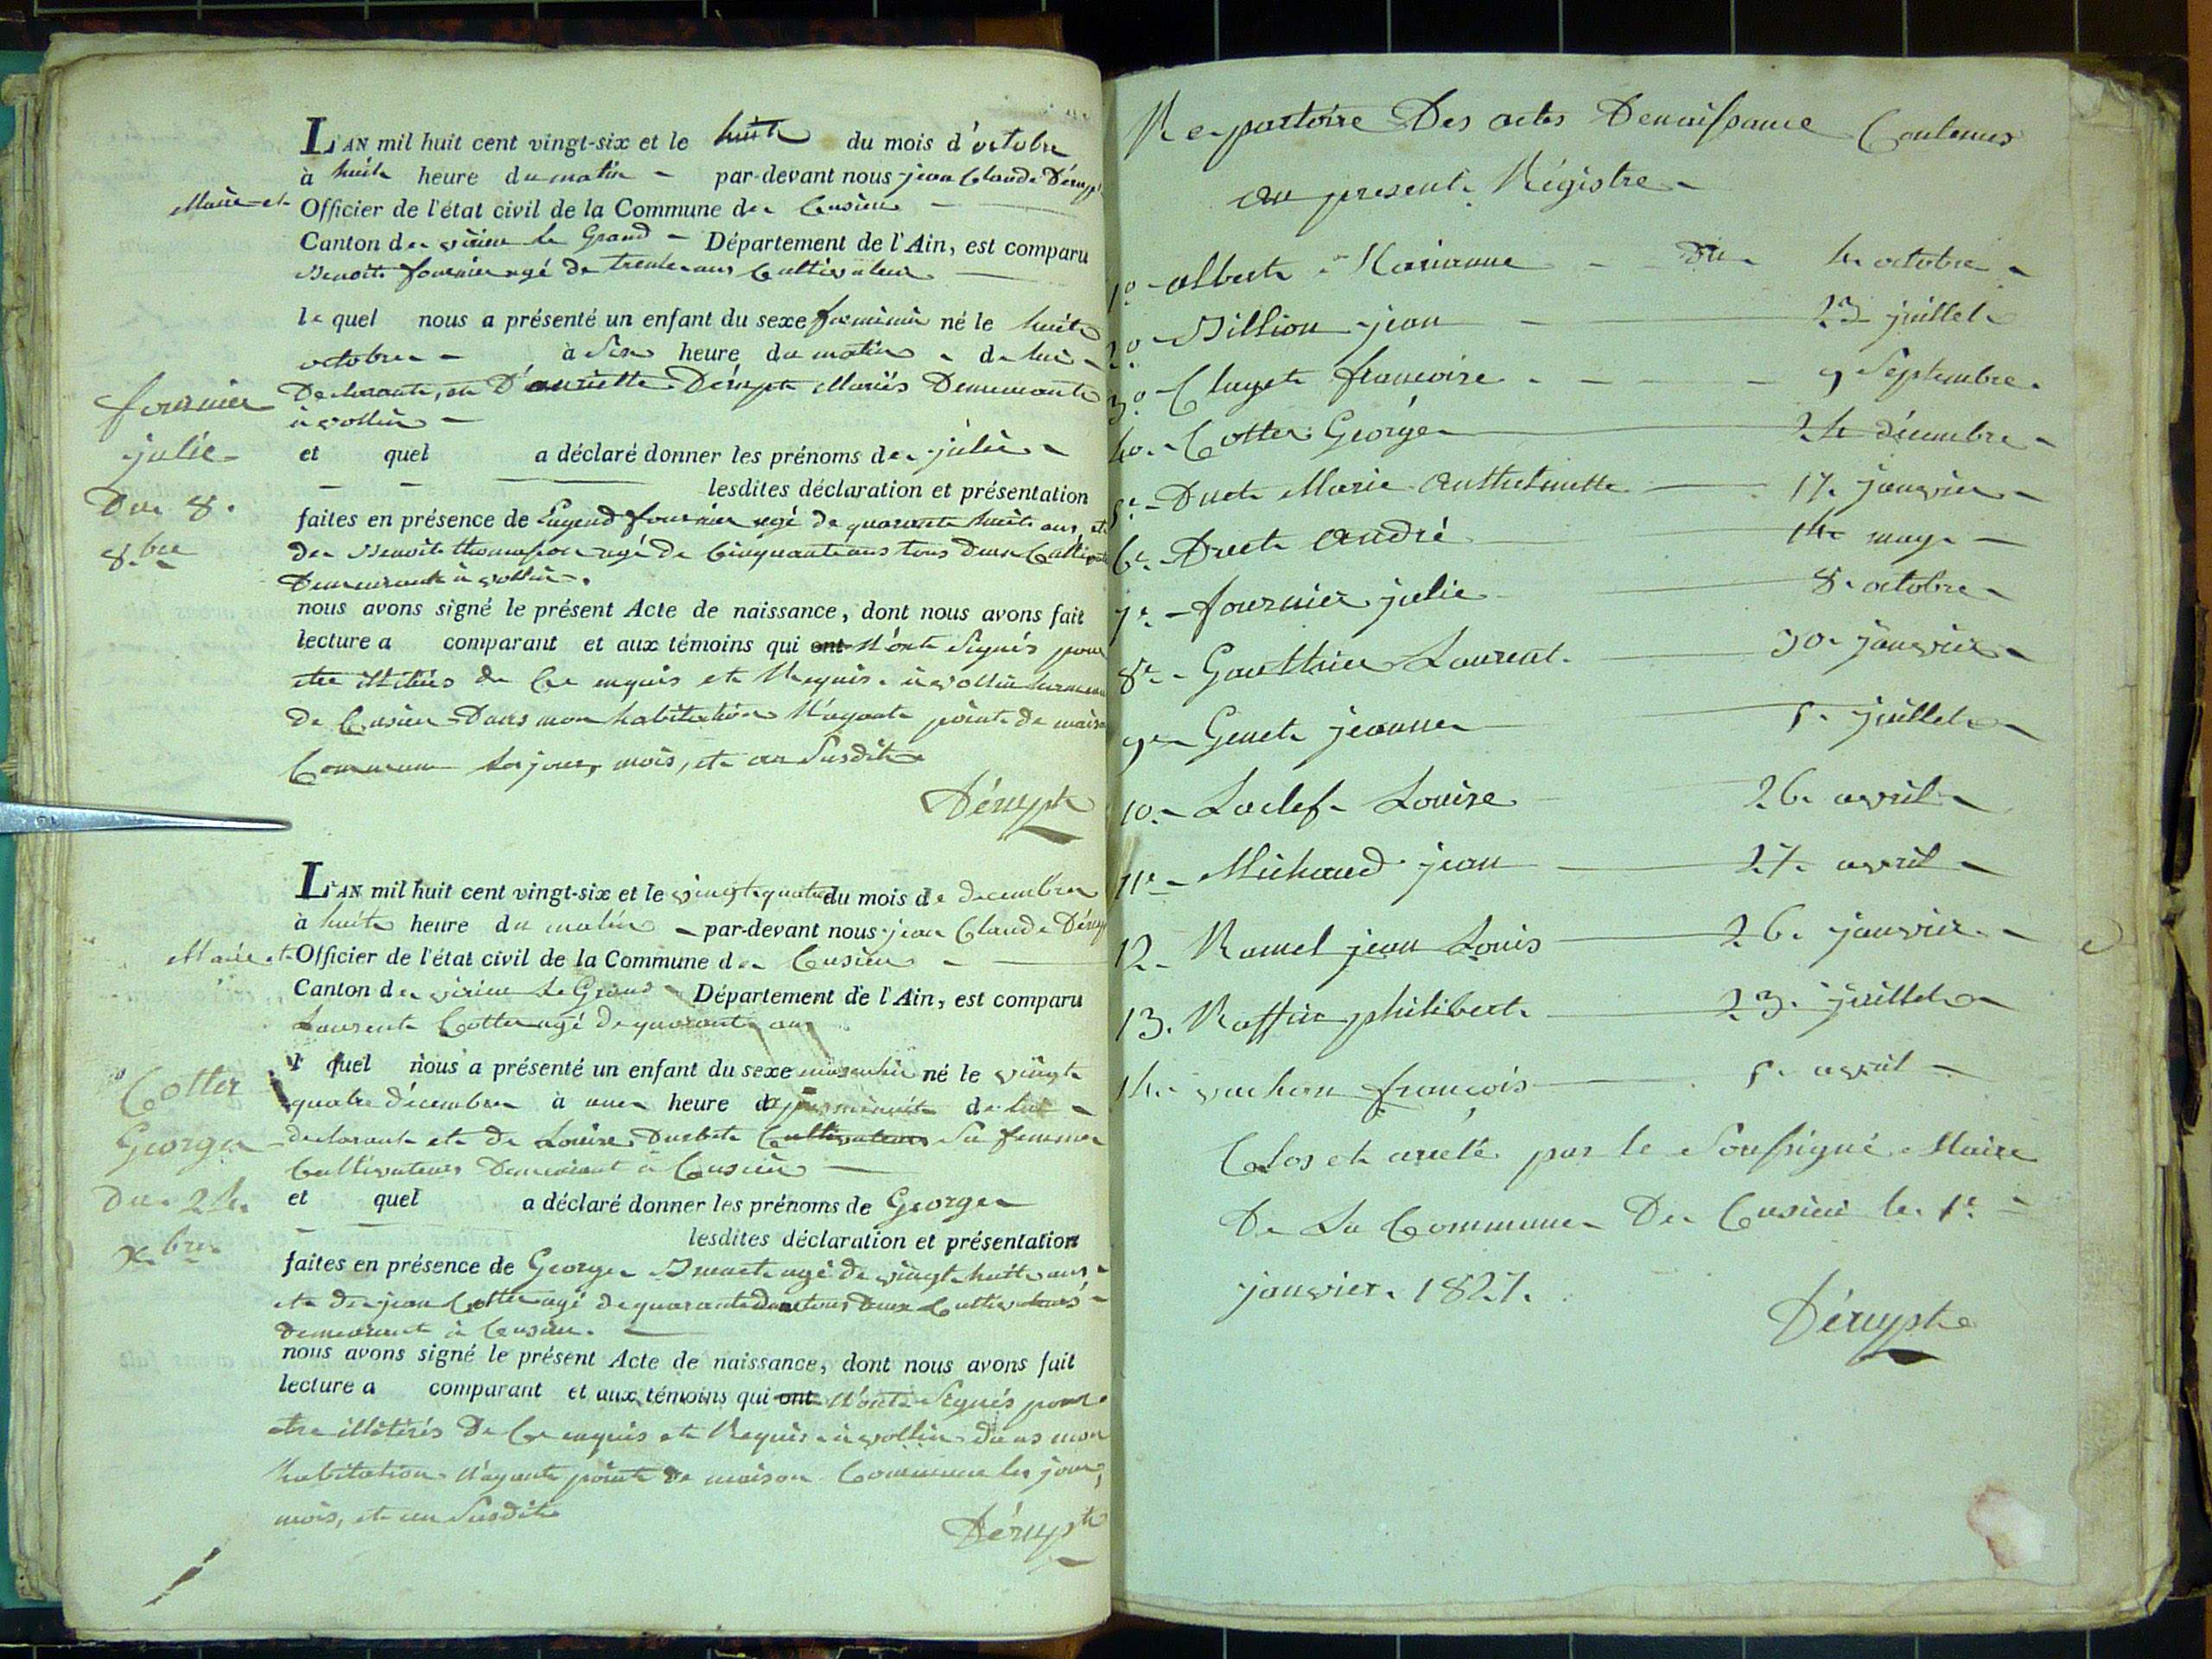 L'AN mil huit cent vingt-six et le huit du mois d'octobre
à huit heure du matin - par-devant nous jean Claude Dérupt
Maire et Officier de l'état civil de la Commune de Cusieu
Canton de virieu le Grand - Département de l'Ain, est comparu
Benoit fournier agé de trente ans Cultivateur
le quel nous a présenté un enfant du sexe feminin né le huit
octobre - à heure du matin - de lui
Declarant, et D' Dérupt Mariés Demeurant
à vollien -
et quel a déclaré donner les prénoms de julie
lesdites déclaration et présentation
faites en présence de fournier agé de quarante huit ans, et
de Benoit thomasson agé de Cinquante ans tous deux
Demeurant à vollien.
nous avons signé le présent Acte de naissance, dont nous avons fait
lecture a comparant et aux témoins qui ont N'ont Signés pour
etre illitérés de Ce enquis et Requis. à vollien hameau
de Cusieu Dans mon habitation N'ayant point de maison
Commune les jour, mois, et an Susdit
Dérupt
fournier
julie
Du 8.
8.bre
L'AN mil huit cent vingt-six et le vingt quatre du mois de decembre
à huit heure du matin - par-devant nous jean Claude Dérupt
Maire et Officier de l'état civil de la Commune de Cusieu
Canton de virieu Le Grand - Département de l'Ain, est comparu
Laurent Cotter agé de quarante ans
l quel nous a présenté un enfant du sexe masculin né le vingt
quatre décembre à une heure de lui
declarant et de Louise Cultivateurs Sa femme
Cultivateurs Demeurant à Cusieu
et quel a déclaré donner les prénoms de George
lesdites déclaration et présentation
faites en présence de George agé de vingt huit ans,
et de jean Cotter agé de quarante tous deux Cultivateurs
demeurant à Cusieu.
nous avons signé le présent Acte de naissance, dont nous avons fait
lecture a comparant et aux témoins qui ont N'ont Signés pour
etre illitérés De Ce enquis et Requis à vollien dans mon
habitation N'ayant point de maison Commune les jour,
mois, et an Susdit
Dérupt
Cotter
George
Du 24.
xbre
Repertoire Des actes Denaissance Contenus
au present Régistre
1º - albert Marianne - du 4 octobre
2º - Billion jean - 23 juillet
3º - Clayet francoise - 9 Septembre
4º - Cotter George 24 décembre
5e - Duet Marie Anthelmette 17 janvier
6e - Druet André 14 may
7e - fournier julie 8 octobre
8e - Gouthier Laurent 30 janvier
9e - Genet jeanne 5 juillet
10. - Laclef Louise 26 avril
11e - Michaud jean 27 avril
12 - Ramel jean Louis 26 janvier
13. Raffin philibert 23 juillet
14. vachon francois 5 avril
Clos et arreté par le Soussigné Maire
De La Commune De Cusieu le 1er
janvier 1827.
Dérupt